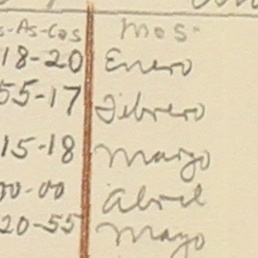 s-As-Cos Mes-
18-20 Enero
55-17 Febrero
15-18 Marzo
00-00 Abril
20-55 Mayo